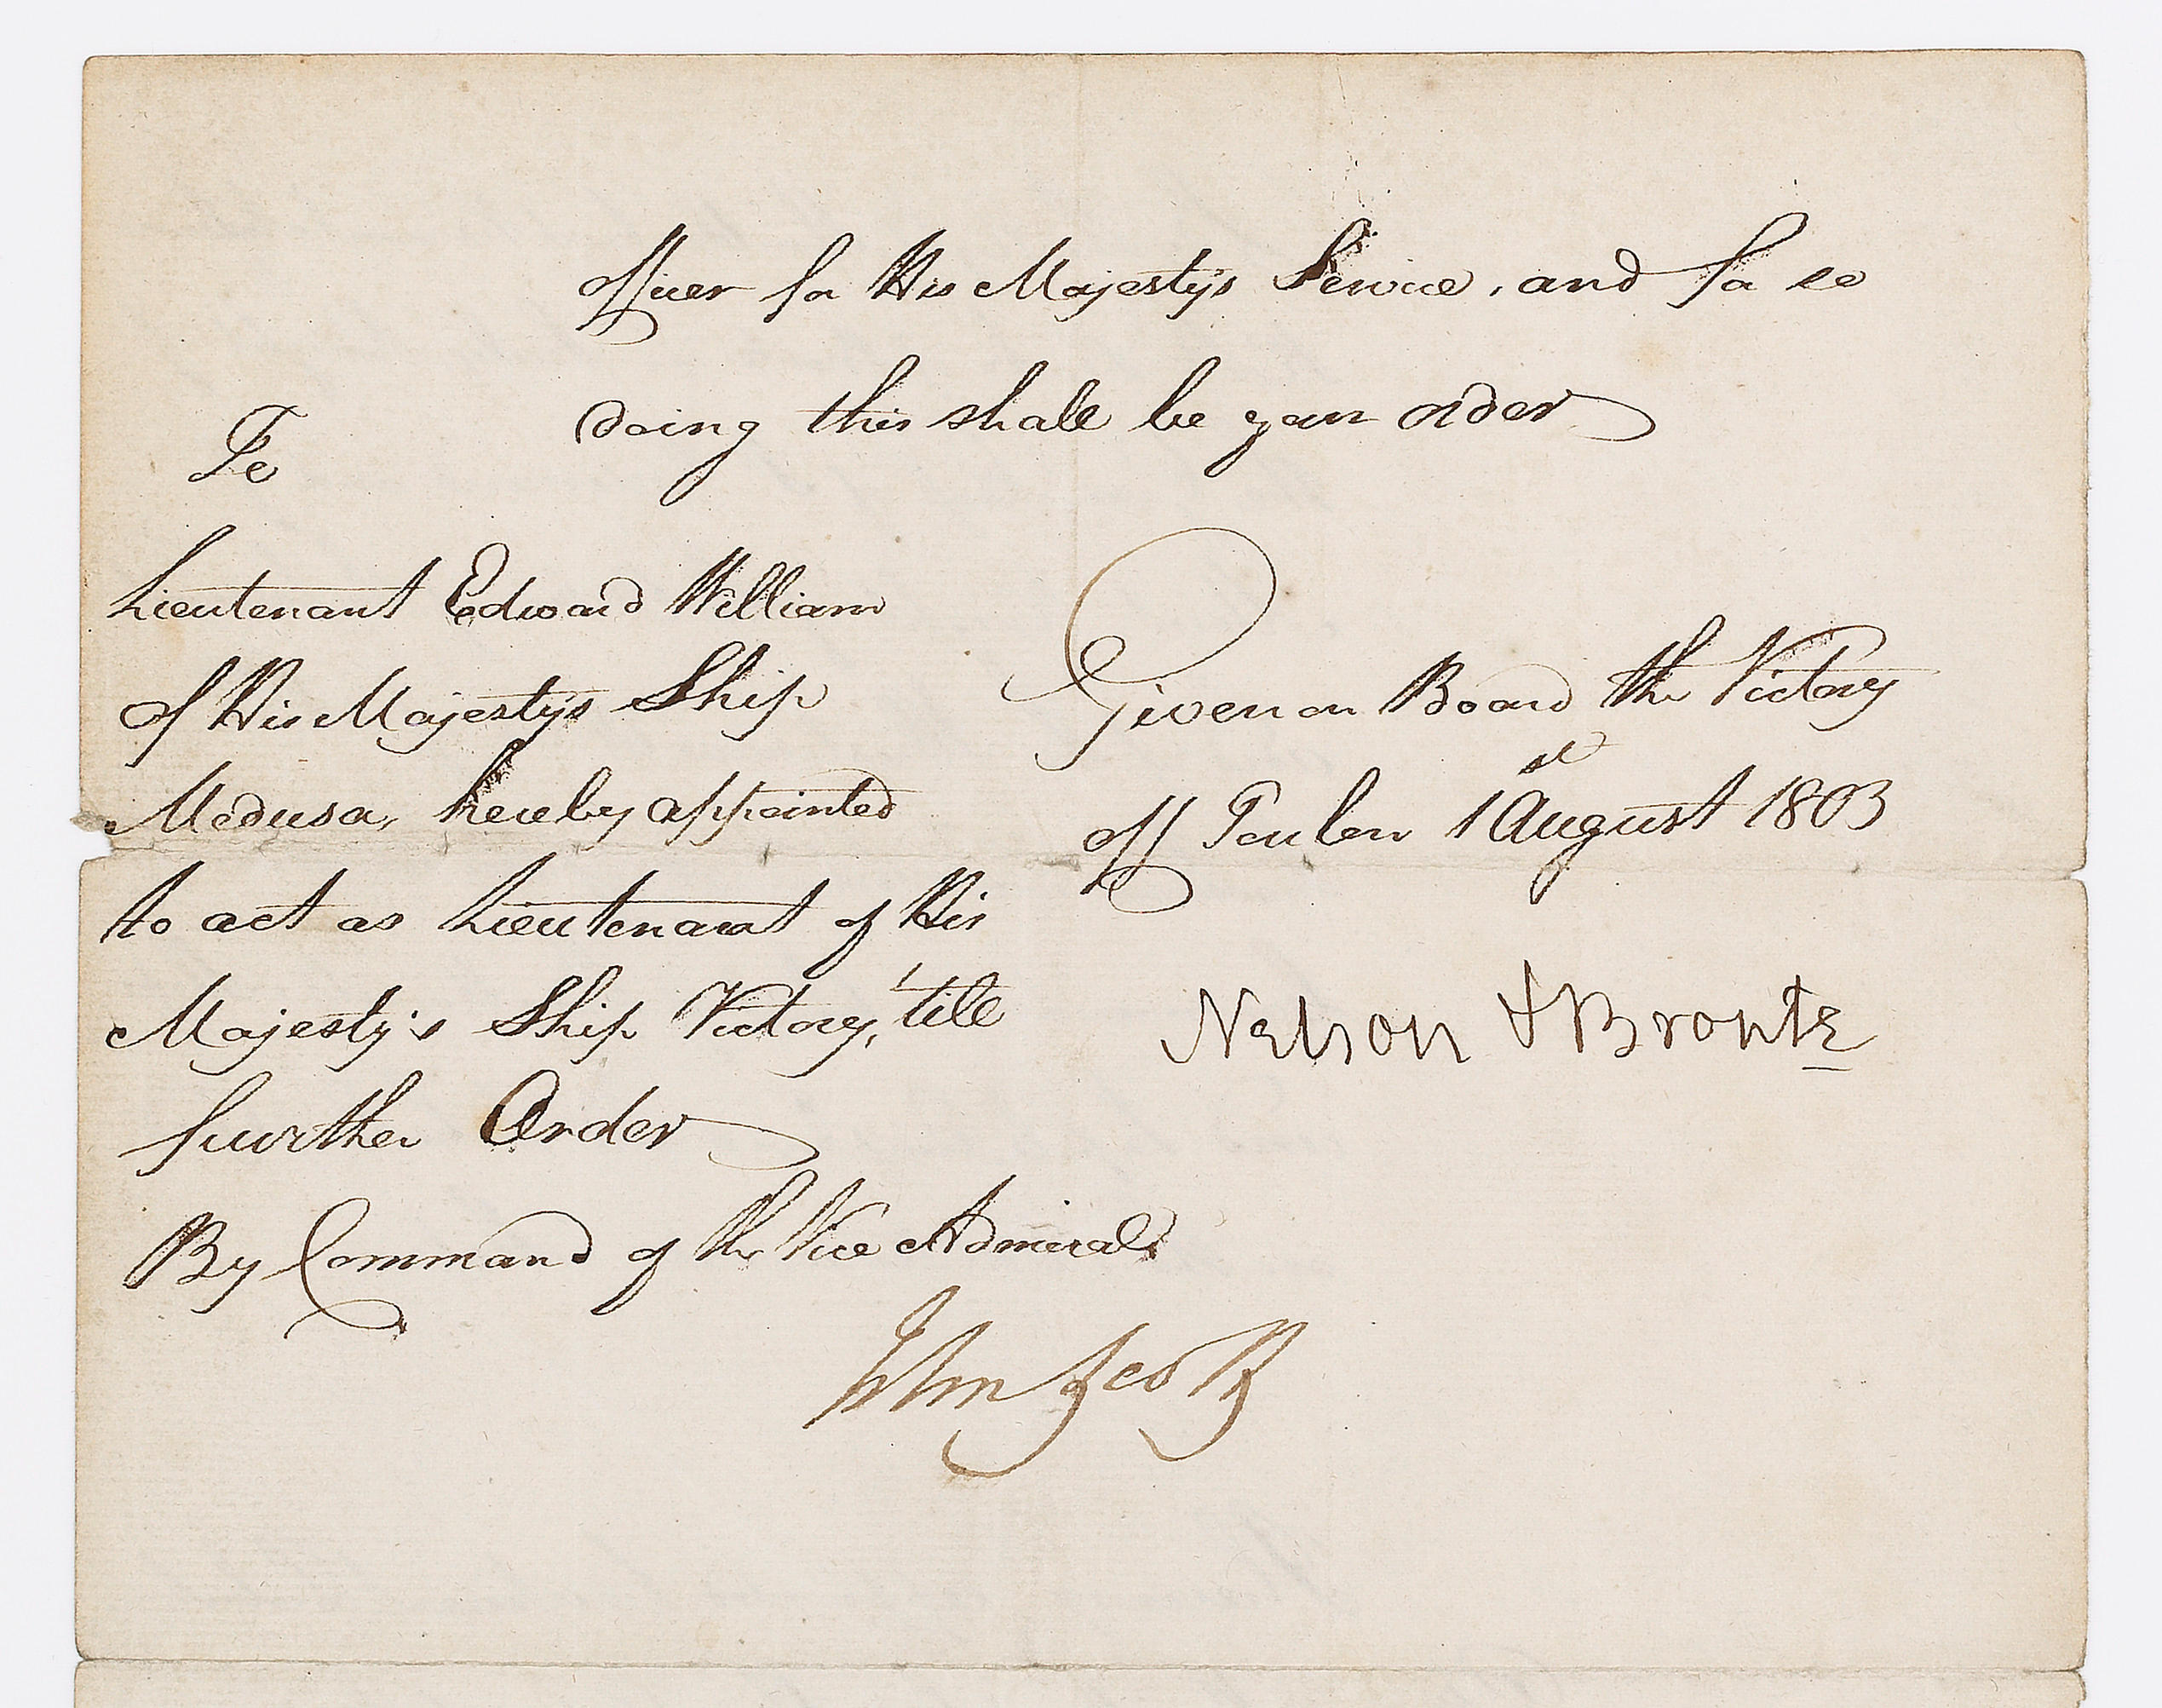 officer for His Majesty's Service, and for so
doing this shall be your order
To
Lieutenant Edward William
of His Majesty's Ship
Medusa, hereby appointed
to act as Lieutenant of His
Majesty's Ship Victory, 'till
further Order
By Command of the Vice Admiral
John Scott
Given on Board the Victory
off Toulon 1st August 1803
Nelson & Bronte